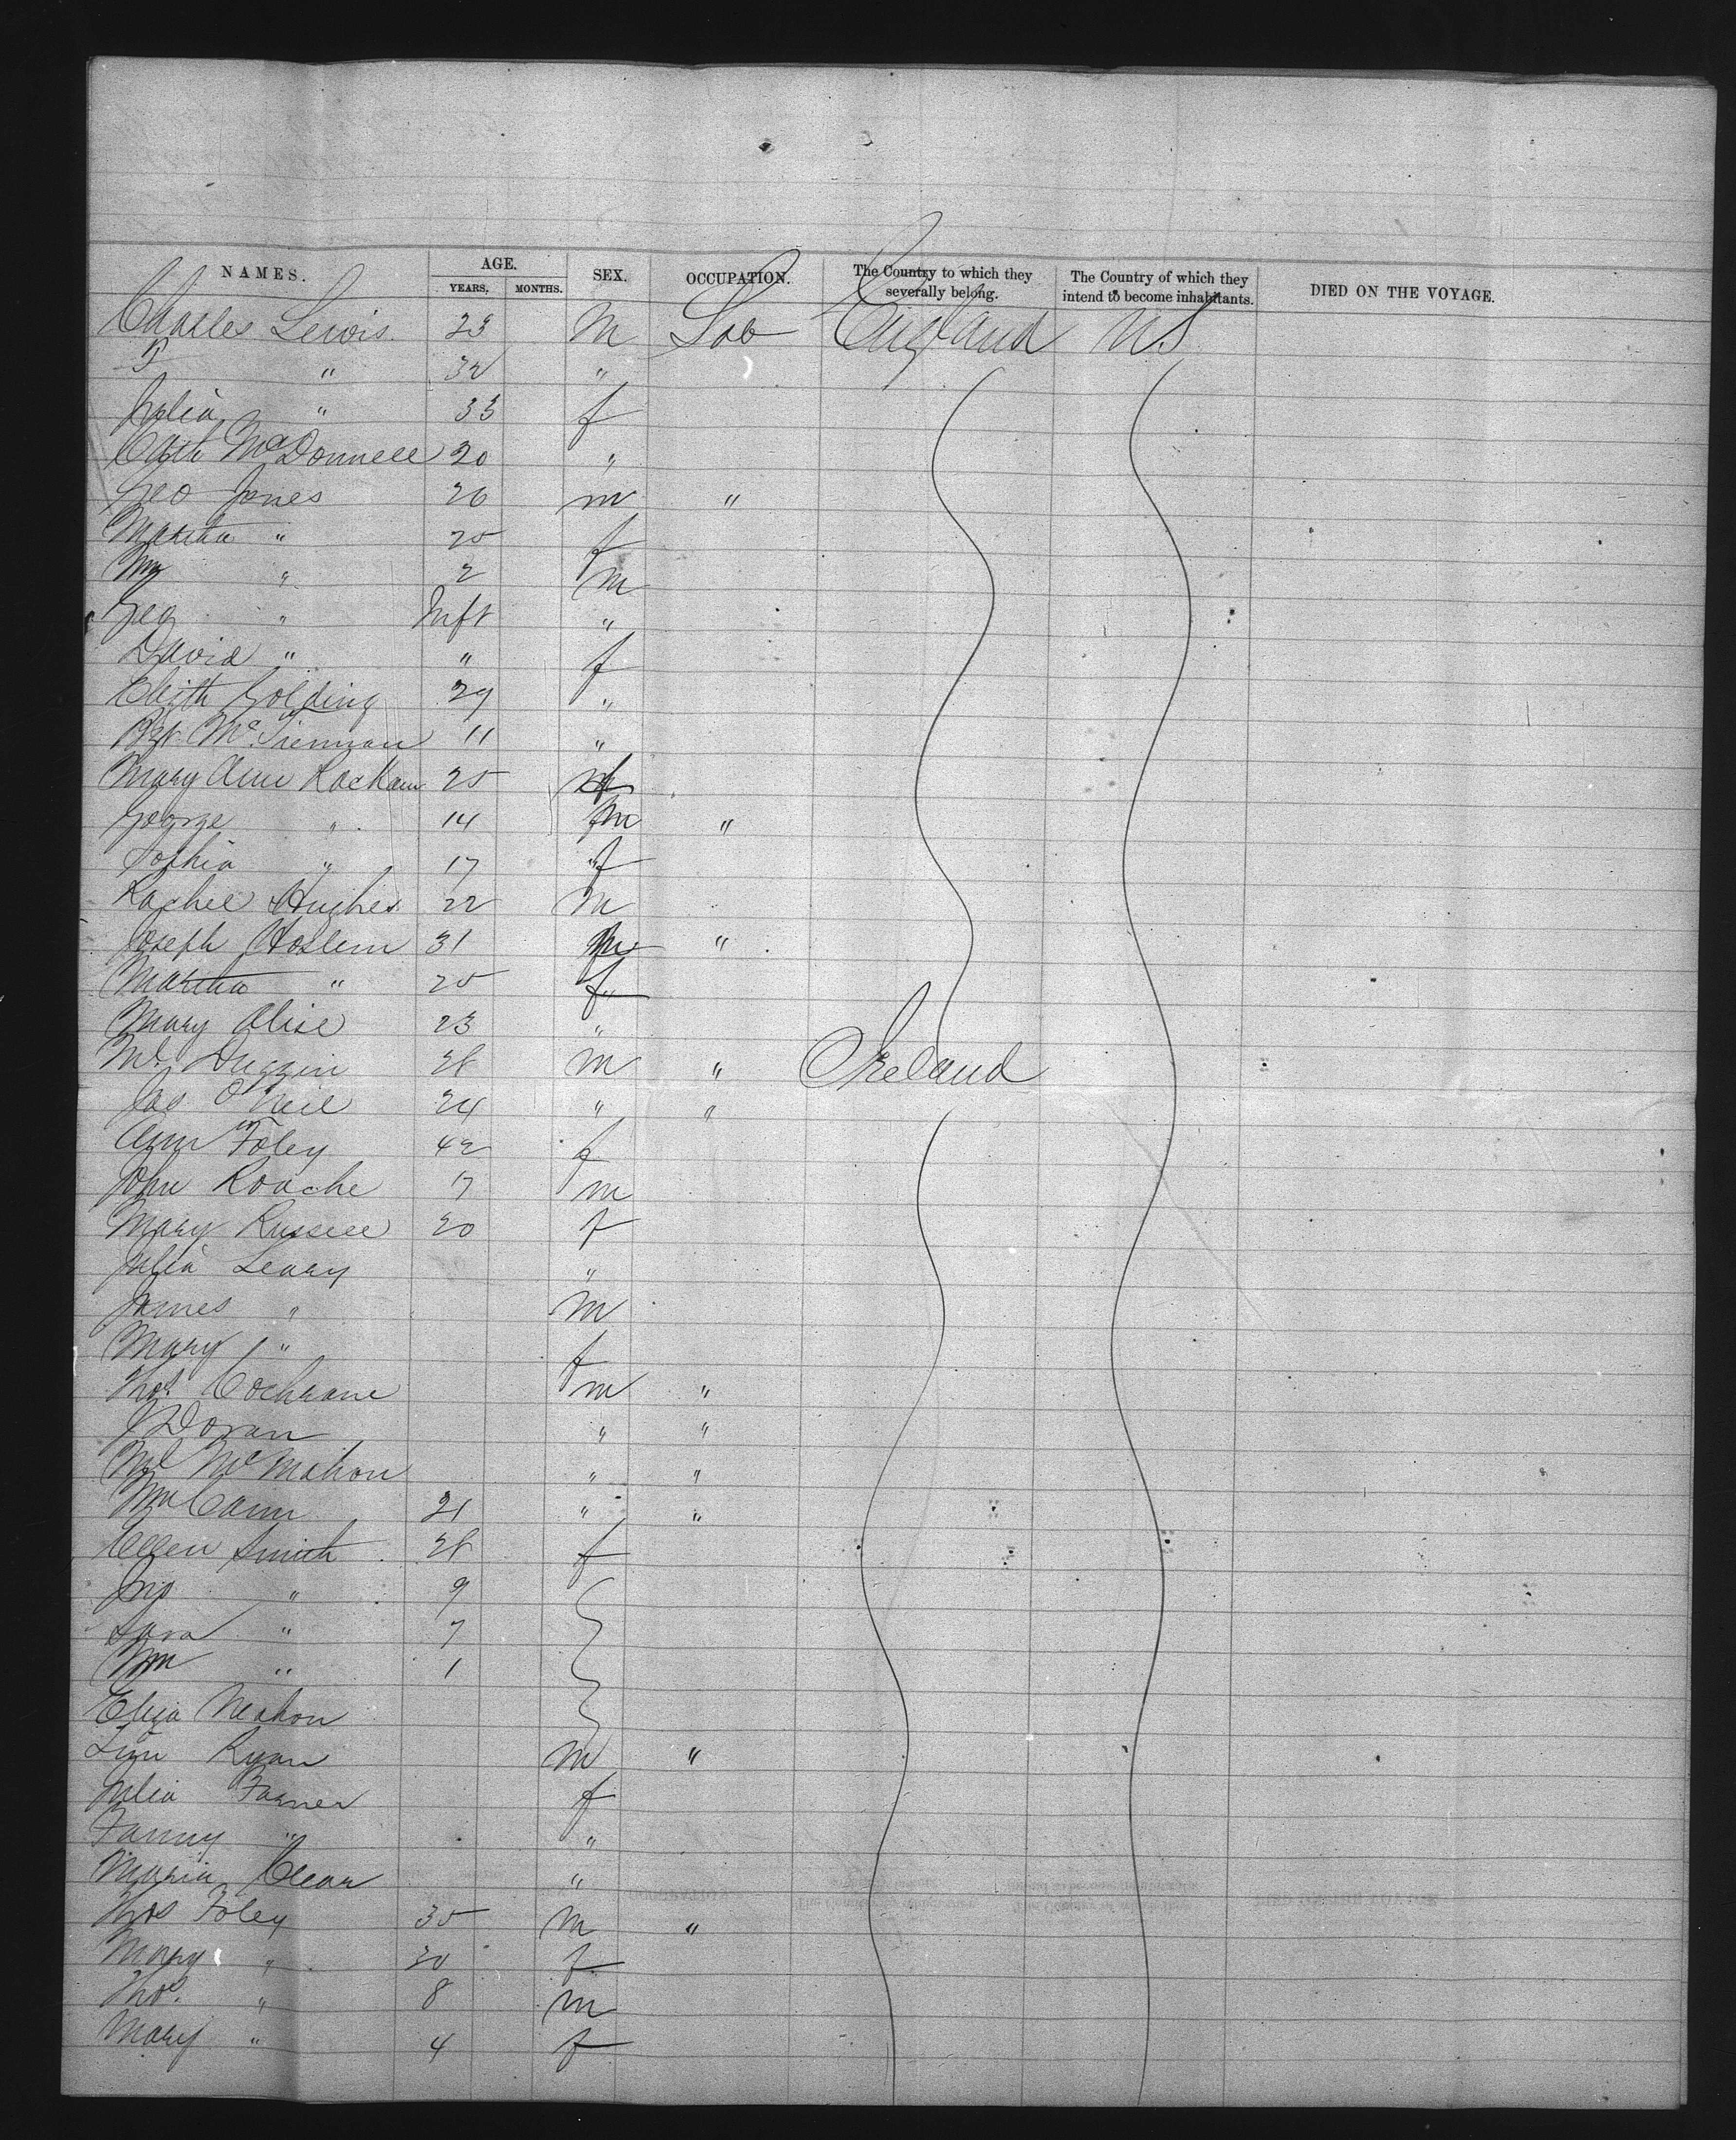 NAMES. AGE. YEARS. MONTHS. SEX. OCCUPATION. The Country to which they severally belong. The Country of which they intend to become inhabitants. DIED ON THE VOYAGE.
Charles Lewis 23 M Lab England U.S
" 32 "
Julia " 33 f
Cath McDonnell 20 "
Geo Jones 26 m "
Martha " 25 f
Wm " 2 m
Geo " Inft "
David " " f
Golding 29 "
Bgt. McTiernnan 11 "
Mary Ann Rackam 25 f
George " 14 m "
Sophia " 17 f
Rachel Hughes 22 M
Joseph Haslem 31 m "
Martha " 25 f
Mary Alise 23 "
Ml Duggin 28 m " Ireland
Jas O'Neil 24 " "
Ann Foley 42 f
John Roache 17 m
Mary Russell 20 f
Julia Leary "
James " m
Mary " f
Thos Cochrane m "
J Doran " "
Ml McMahon " "
Wm Cann 21 " "
Ellen Smith 28 f
Jno " 9
Sara " 7
Wm " 1
Eliza Mahon
Tim Ryan m "
Julia Farner f
Fanny " "
Maria Clear "
Thos Foley 35 m "
Mary " 30 f
Thos. " 8 m
Mary " 4 f